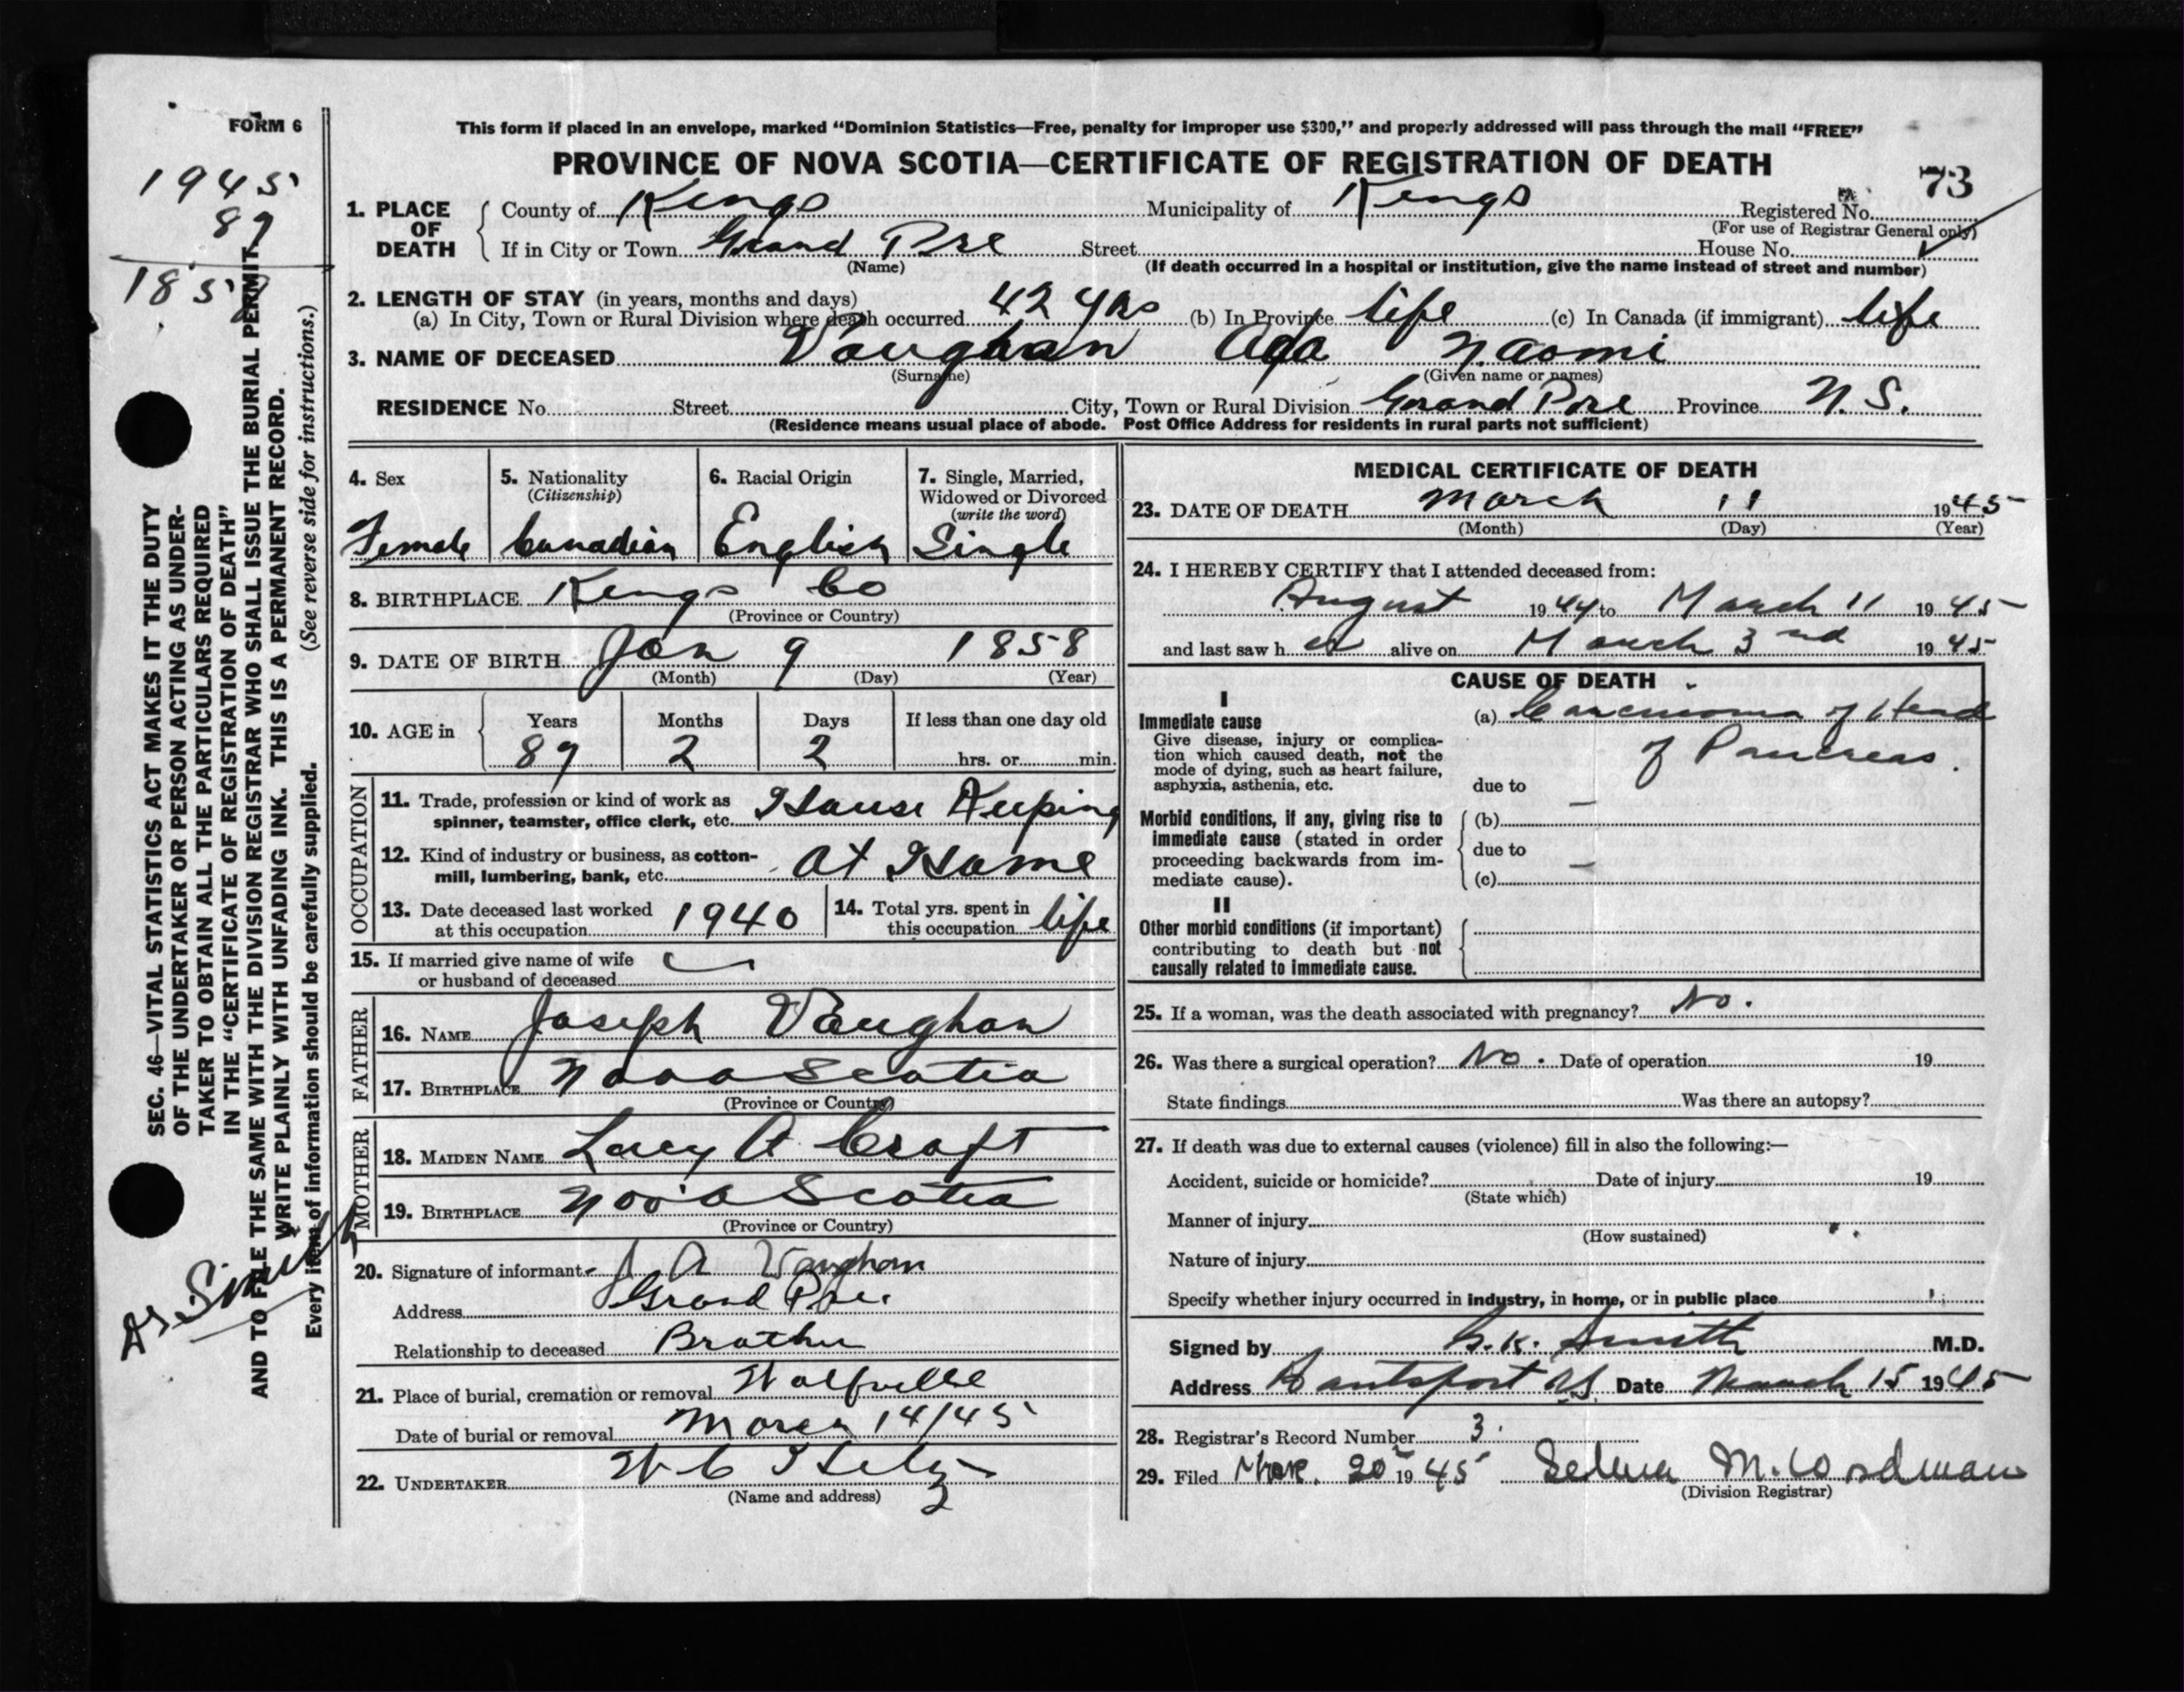 FORM 6
1945
87
This form if placed in an envelope, marked "Dominion Statistics—Free, penalty for improper use $300," and properly addressed will pass through the mail "FREE"
PROVINCE OF NOVA SCOTIA—CERTIFICATE OF REGISTRATION OF DEATH
73
1. PLACE OF DEATH
County of Kings Municipality of Kings Registered No.
(For use of Registrar General only)
If in City or Town Grand Pre Street House No.
(Name) (If death occurred in a hospital or institution, give the name instead of street and number)
2. LENGTH OF STAY (in years, months and days)
(a) In City, Town or Rural Division where death occurred 42 yrs (b) In Province life (c) In Canada (if immigrant) life
3. NAME OF DECEASED Vaughan Ada Naomi
(Surname) (Given name or names)
RESIDENCE No. Street City, Town or Rural Division Grand Pre Province N.S.
(Residence means usual place of abode. Post Office Address for residents in rural parts not sufficient)
4. Sex
Female
5. Nationality
(Citizenship)
Canadian
6. Racial Origin
English
7. Single, Married,
Widowed or Divorced
(write the word)
Single
8. BIRTHPLACE Kings Co
(Province or Country)
9. DATE OF BIRTH Jan 9 1858
(Month) (Day) (Year)
10. AGE in Years Months Days If less than one day old
87 2 2 hrs. or min.
OCCUPATION
11. Trade, profession or kind of work as
spinner, teamster, office clerk, etc. House Keeping
12. Kind of industry or business, as cotton-
mill, lumbering, bank, etc. At Home
13. Date deceased last worked
at this occupation 1940
14. Total yrs. spent in
this occupation life
15. If married give name of wife
or husband of deceased
FATHER
16. NAME Joseph Vaughan
17. BIRTHPLACE Nova Scotia
(Province or Country)
MOTHER
18. MAIDEN NAME Lucy A Croft
19. BIRTHPLACE Nova Scotia
(Province or Country)
20. Signature of informant J A Vaughan
Address Grand Pre
Relationship to deceased Brother
21. Place of burial, cremation or removal Wolfville
Date of burial or removal March 14/45
22. UNDERTAKER W C
(Name and address) 2
MEDICAL CERTIFICATE OF DEATH
23. DATE OF DEATH March 11 1945
(Month) (Day) (Year)
24. I HEREBY CERTIFY that I attended deceased from:
August 1944 to March 11 1945
and last saw h er alive on March 3rd 1945
CAUSE OF DEATH
I
Immediate cause
Give disease, injury or complica-
tion which caused death, not the
mode of dying, such as heart failure,
asphyxia, asthenia, etc.
(a) Carcinoma of Head
of Pancreas.
due to
Morbid conditions, if any, giving rise to
immediate cause (stated in order
proceeding backwards from im-
mediate cause).
(b)
due to
(c)
II
Other morbid conditions (if important)
contributing to death but not
causally related to immediate cause.
25. If a woman, was the death associated with pregnancy? No.
26. Was there a surgical operation? No. Date of operation 19
State findings Was there an autopsy?
27. If death was due to external causes (violence) fill in also the following:—
Accident, suicide or homicide? Date of injury 19
(State which)
Manner of injury
(How sustained)
Nature of injury
Specify whether injury occurred in industry, in home, or in public place
Signed by Smith M.D.
Address Hantsport NS Date March 15 1945
28. Registrar's Record Number 3.
29. Filed Mar. 20 1945 Selma M. Woodman
(Division Registrar)
SEC. 46—VITAL STATISTICS ACT MAKES IT THE DUTY
OF THE UNDERTAKER OR PERSON ACTING AS UNDER-
TAKER TO OBTAIN ALL THE PARTICULARS REQUIRED
IN THE "CERTIFICATE OF REGISTRATION OF DEATH"
AND TO FILE THE SAME WITH THE DIVISION REGISTRAR WHO SHALL ISSUE THE BURIAL PERMIT.
WRITE PLAINLY WITH UNFADING INK. THIS IS A PERMANENT RECORD.
Every item of information should be carefully supplied. (See reverse side for instructions.)
Dr. Smith